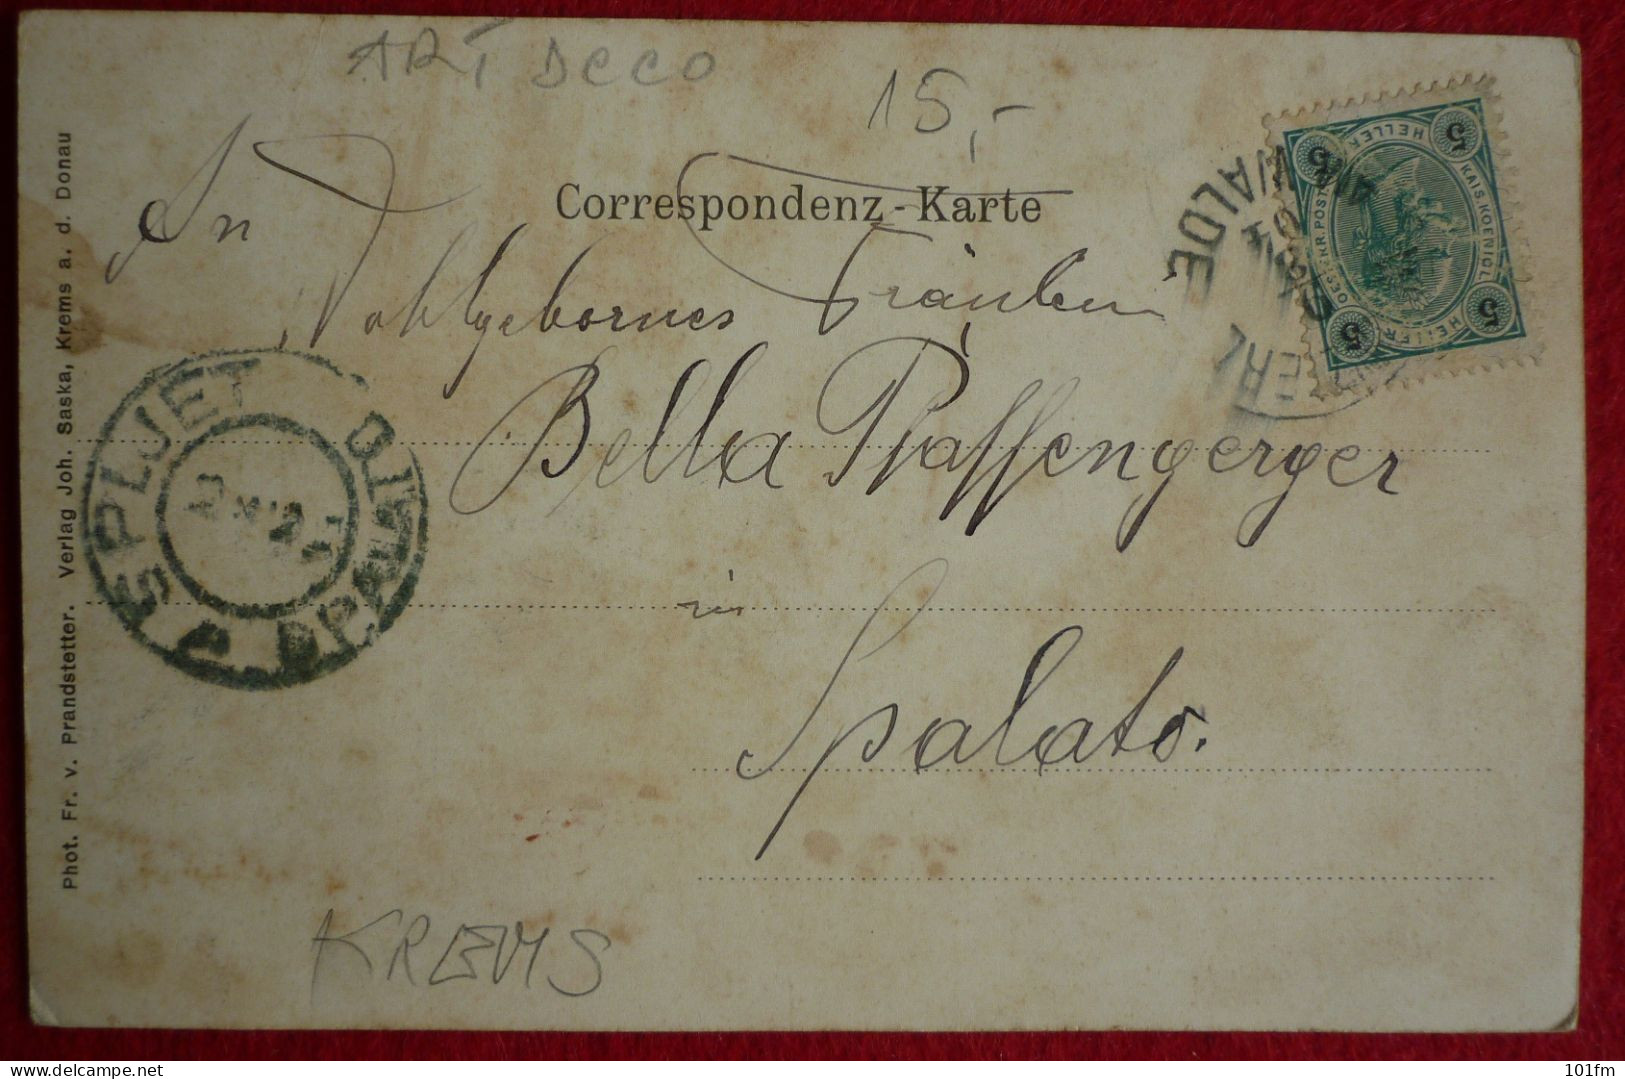 ART DECO
15,-
Correspondenz-Karte
An
Wohlgebornes Fräulein
Bella Pfaffengerger
in
Spalato.
KREMS
Phot. Fr. v. Prandstetter. Verlag Joh. Saska, Krems a. d. Donau
SPLJET
SPALATO
WALDE
5 5 5 5
HELLER
KAIS. KOENIGL.
HELLER
OESTERR. POST
101fm